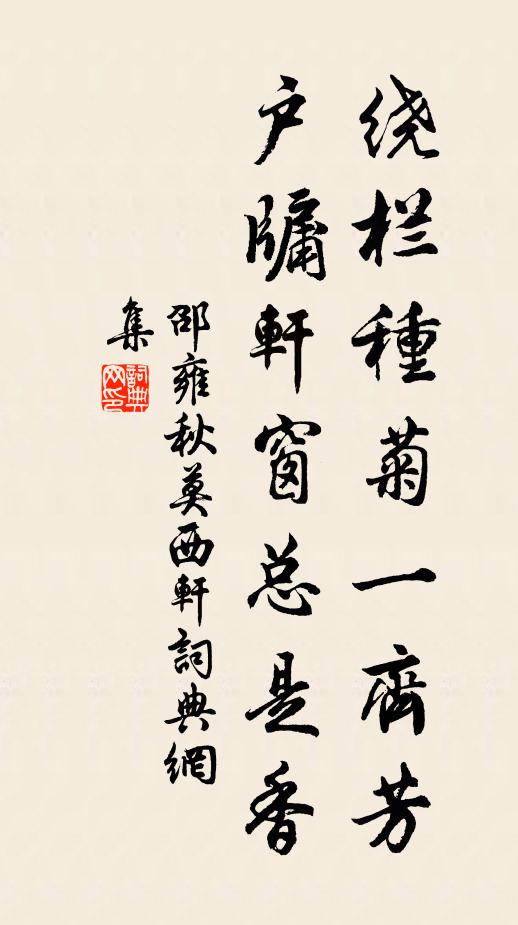 绕栏種菊一齊芳
户牖軒窗总是香
邵雍秋莫西軒詞典網
集
詞典網印